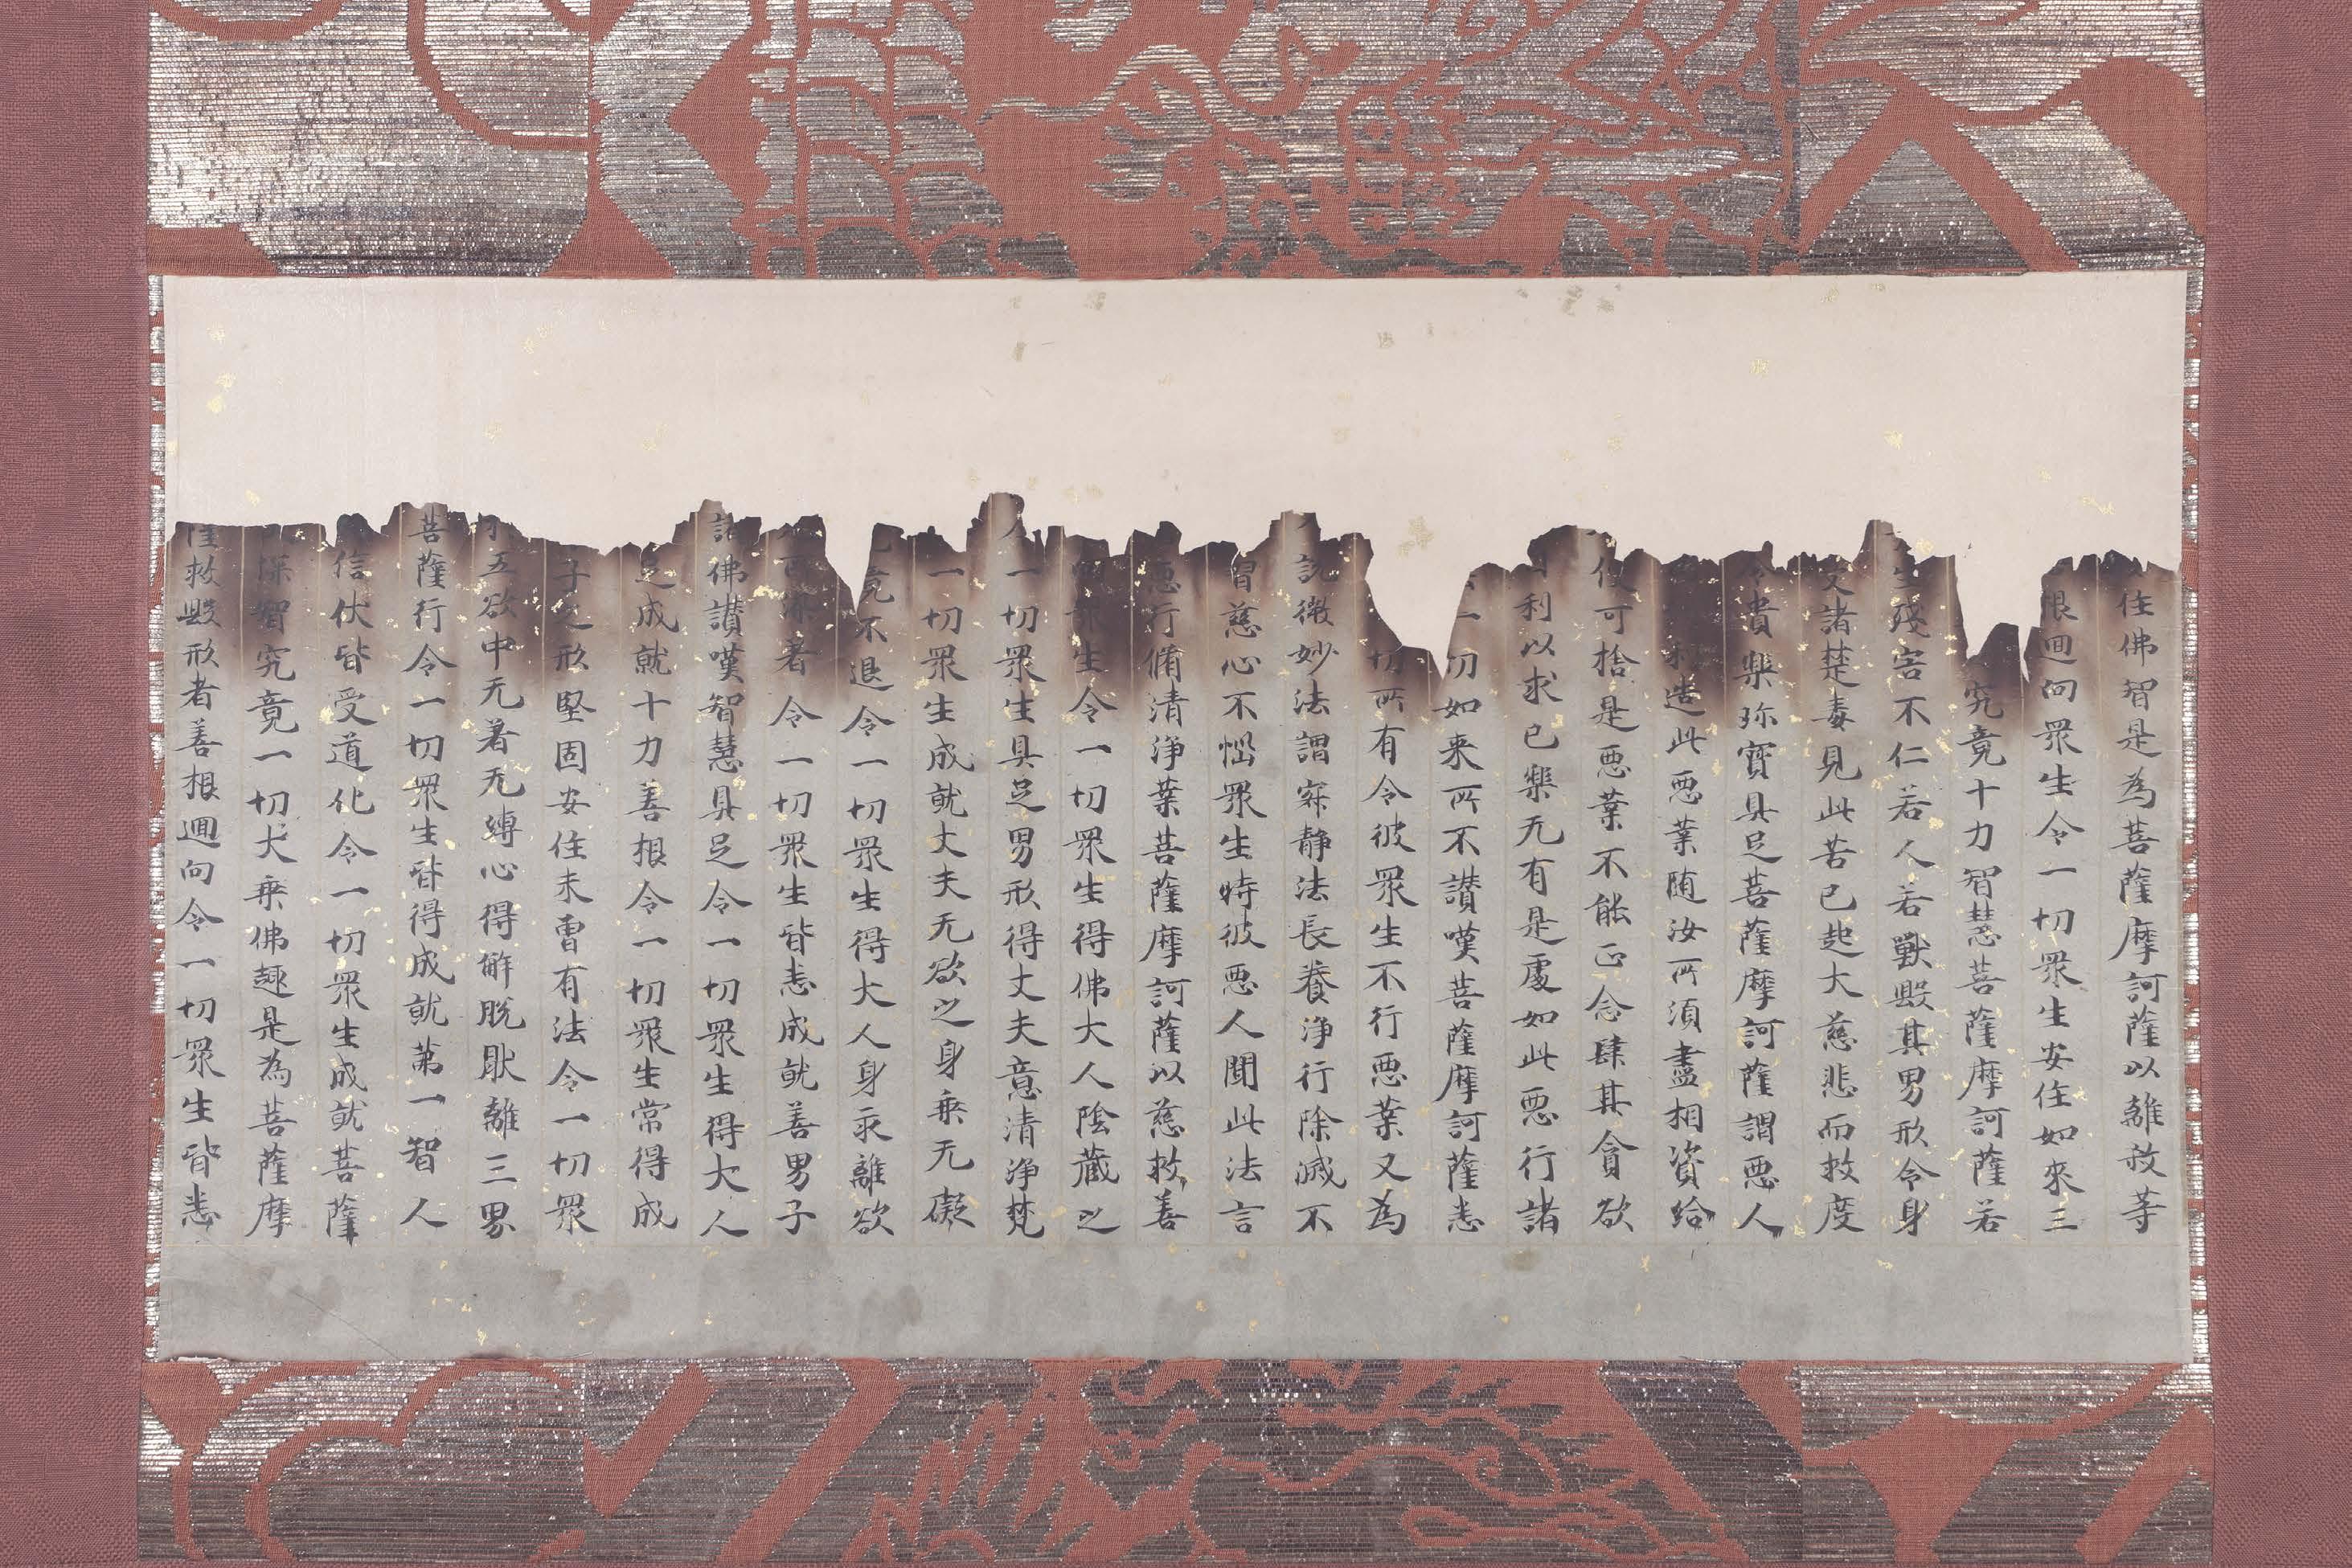 住佛智是為菩薩摩訶薩以離救等
根迴向眾生令一切眾生安住如來三
究竟十力智慧菩薩摩訶薩若
生殘害不仁若人若獸毀其男形令身
受諸楚毒見此苦已起大慈悲而救度
令貴樂珎寶具足菩薩摩訶薩謂惡人
造此惡業随汝所湏盡相資給
可捨是惡業不能正念肆其貪欲
利以求已樂无有是處如此惡行諸
一切如来所不讃嘆菩薩摩訶薩悉
切所有令彼眾生不行惡業又為
說微妙法謂寂静法長養淨行除滅不
慈心不惱眾生時彼惡人聞此法言
惡行脩清淨業菩薩摩訶薩以慈救善
眾生令一切眾生得佛大人陰藏之
一切眾生具足男形得丈夫意清淨梵
一切眾生成就丈夫无欲之身乘无礙
竟不退令一切眾生得大人身永離欲
著令一切眾生皆悉成就善男子
足成就十力善根令一切眾生常得成
諸佛讃嘆智慧具足令一切眾生得大人
子之形堅固安住未曹有法令一切眾
五欲中无著无縛心得解脫猒離三界
菩薩行令一切眾生皆得成就苐一智人
信伏皆受道化令一切眾生成就菩薩
深智究竟一切大乘佛趣是為菩薩摩
救毀形者善根迴向令一切眾生皆悉